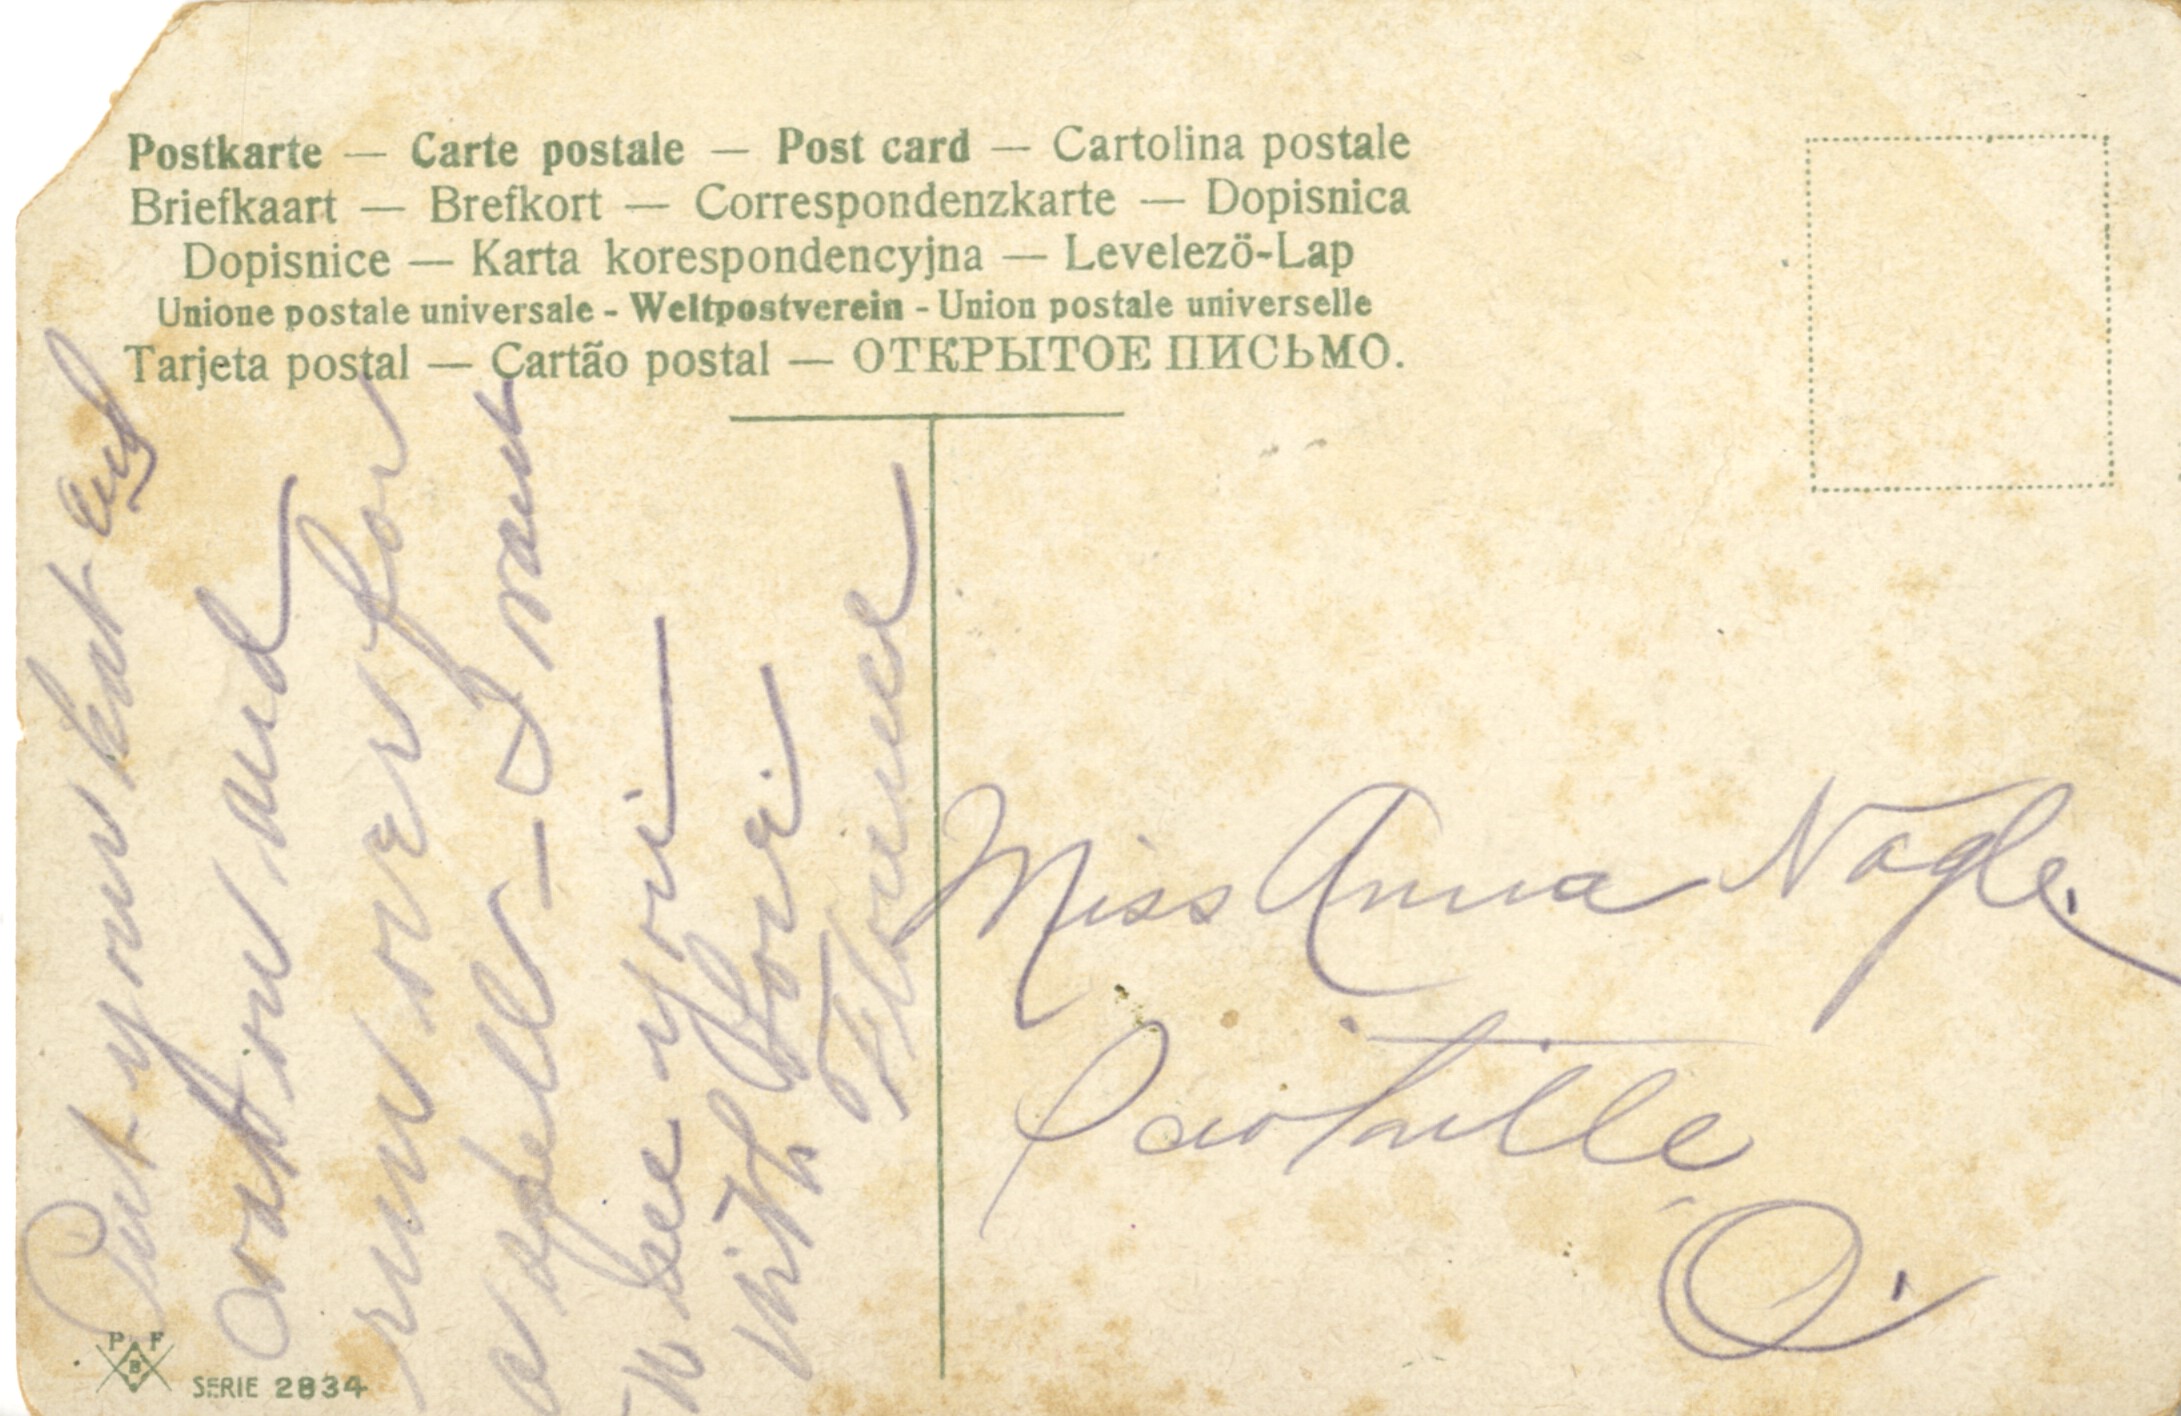 Postkarte — Carte postale — Post card — Cartolina postale
Briefkaart — Brefkort — Correspondenzkarte — Dopisnica
Dopisnice — Karta korespondencyjna — Levelezö-Lap
Unione postale universale - Weltpostverein - Union postale universelle
Tarjeta postal — Cartão postal — ОТКРЫТОЕ ПИСЬМО.
Put your hat and
coat on and
run over for
a spell — I want
to see you
with love.
Florence
Miss Anna Nagle.
O.
P F
B
SERIE 2834